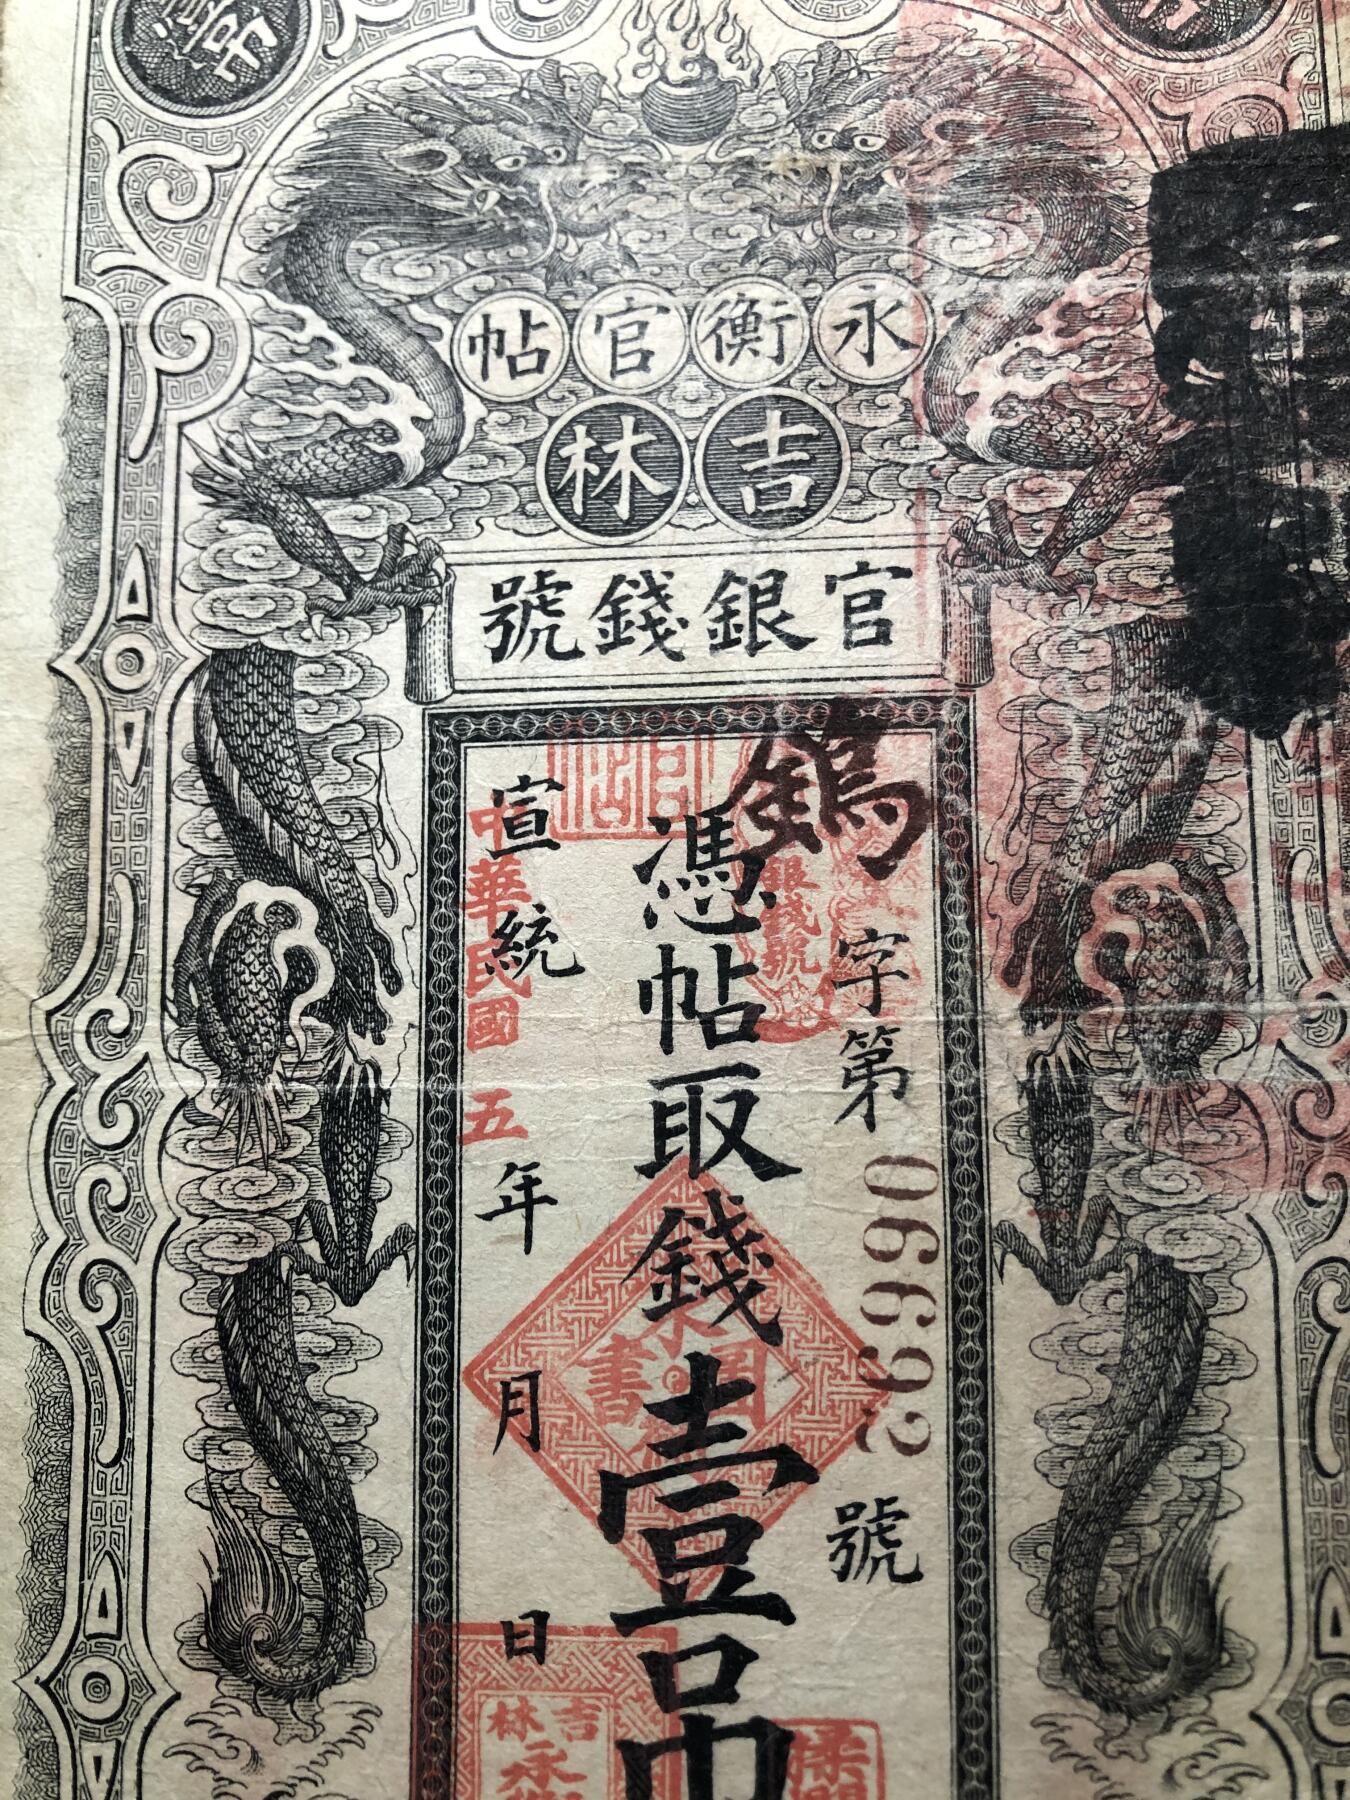 永衡官帖
吉林
官銀錢號
鎢字第066692號
憑帖取錢壹吊
宣統
中華民國
五
年
月
日
官帖
銀錢號
書
吉林
永衡